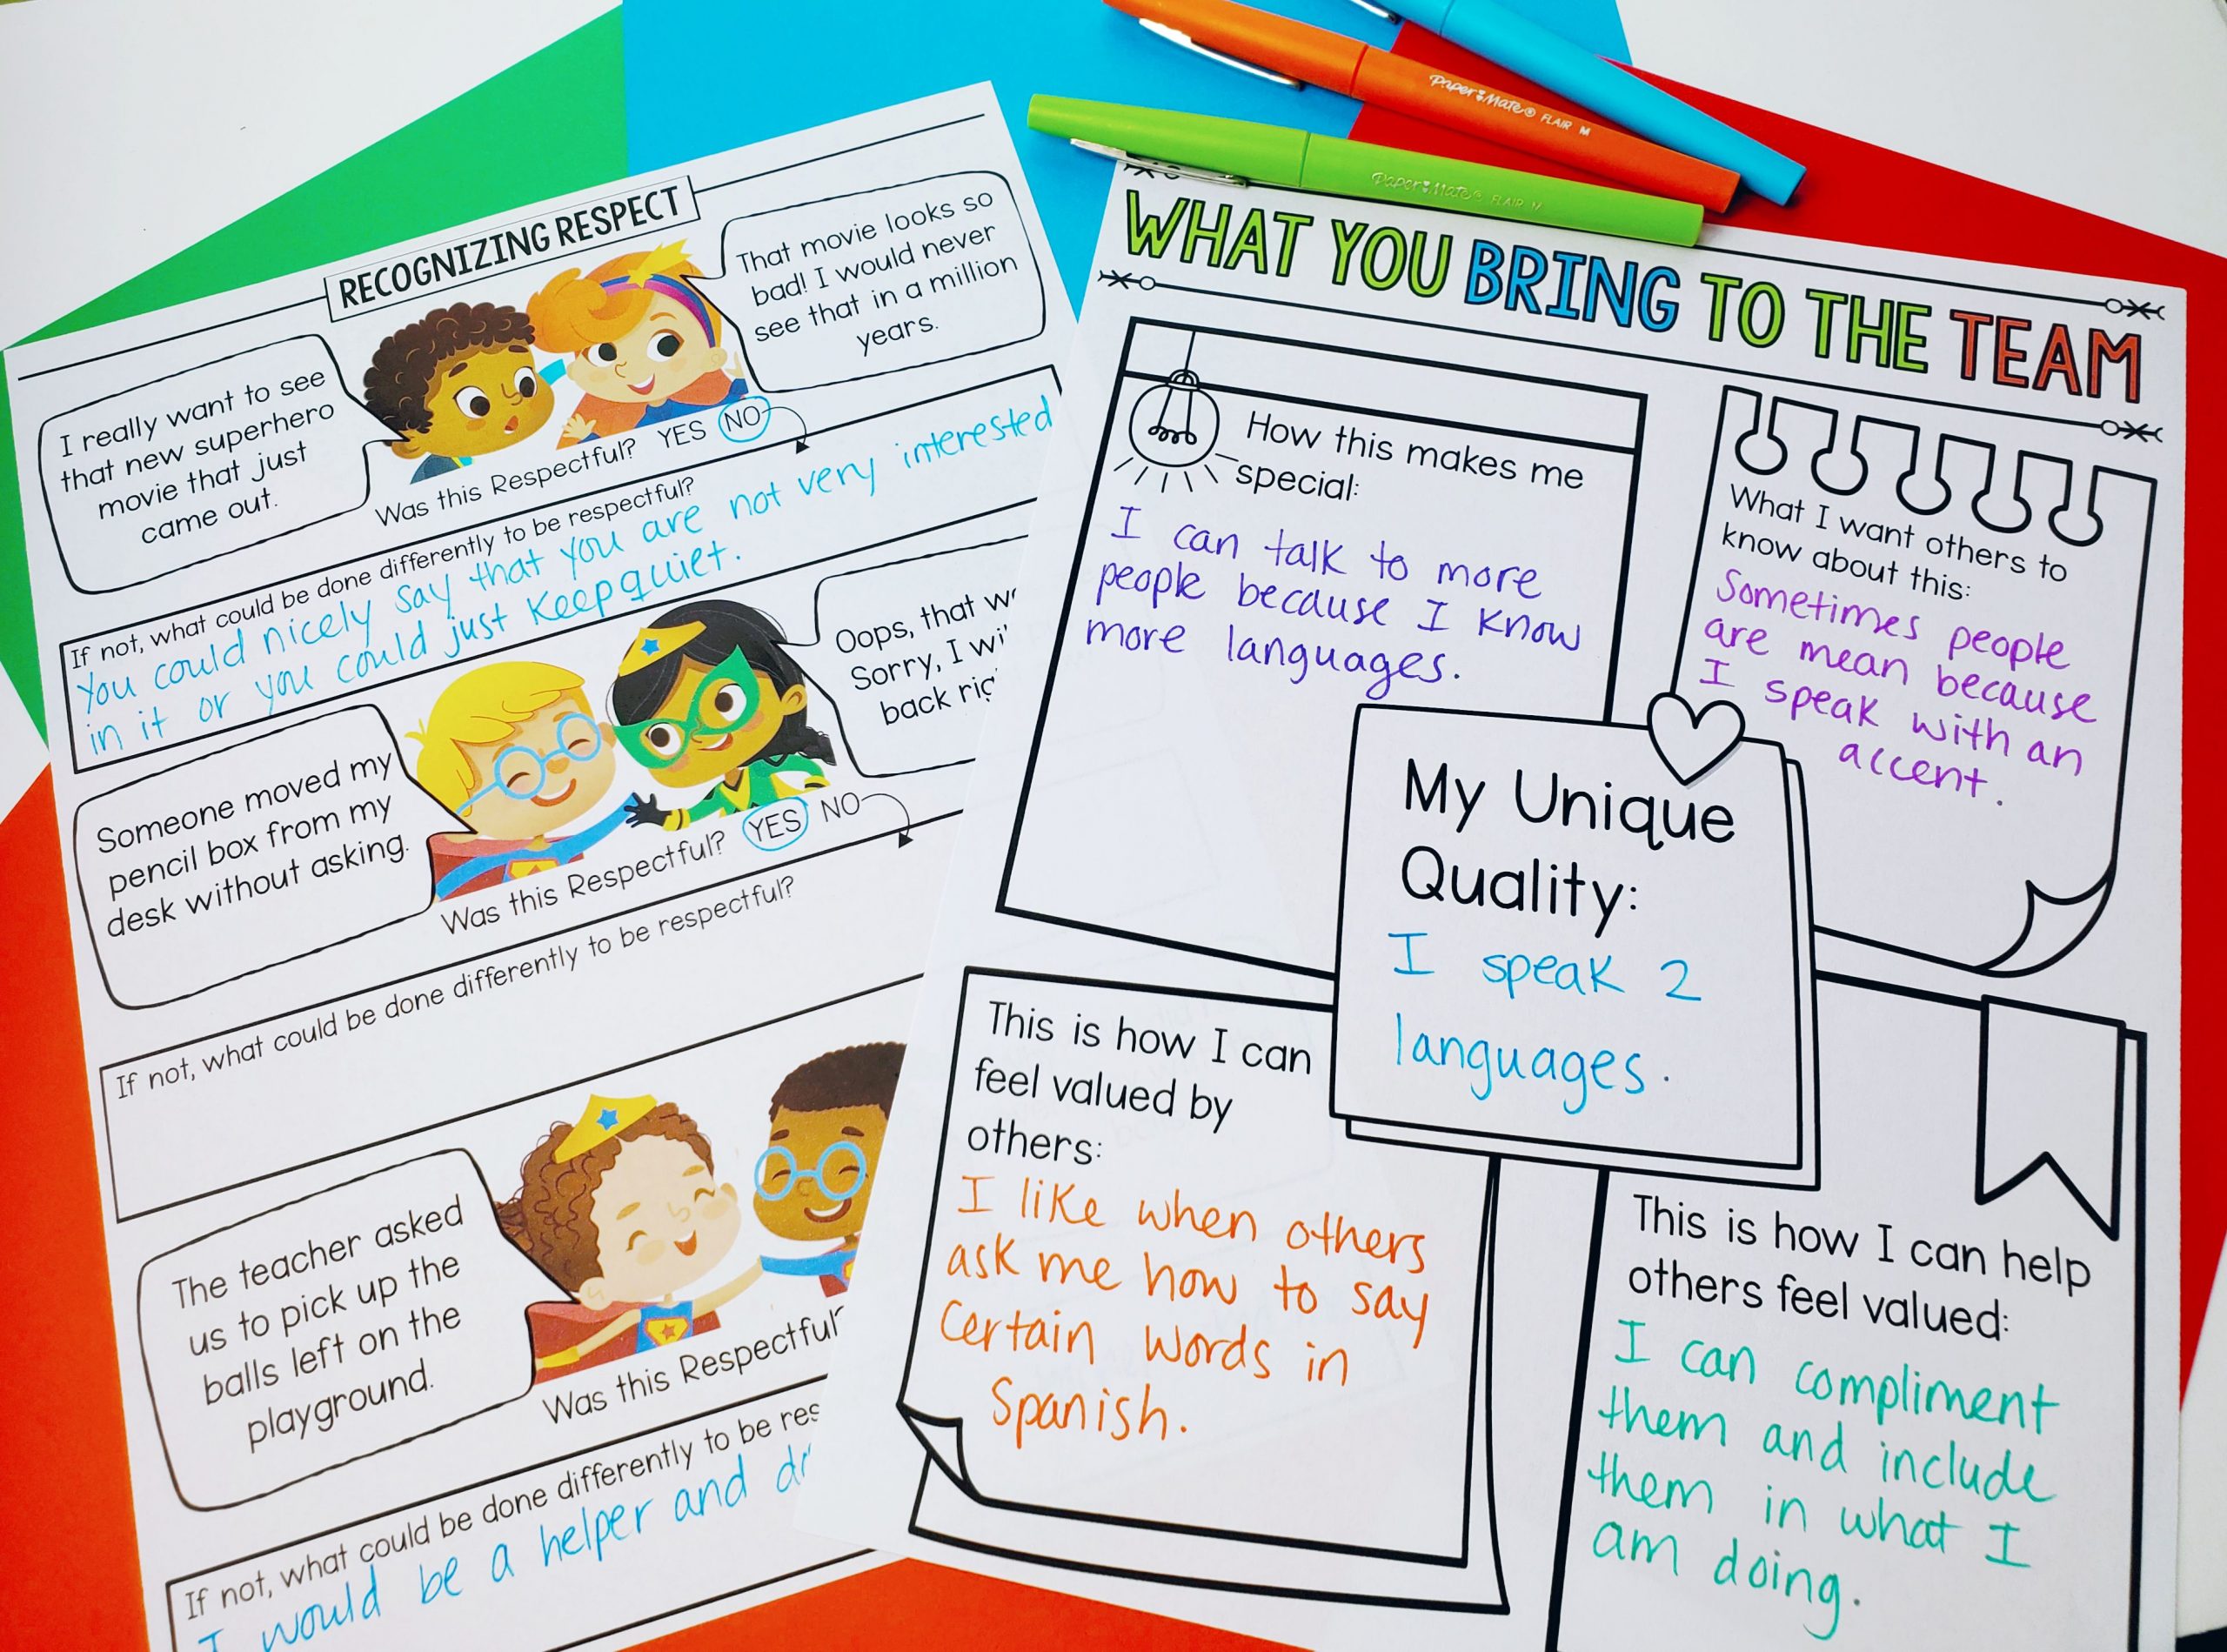 RECOGNIZING RESPECT
I really want to see
that new superhero
movie that just
came out.
That movie looks so
bad! I would never
see that in a million
years.
Was this Respectful? YES NO
If not, what could be done differently to be respectful?
You could nicely say that you are not very interested
in it or you could just keep quiet.
Someone moved my
pencil box from my
desk without asking.
Oops, that
Sorry, I
back
Was this Respectful? YES NO
If not, what could be done differently to be respectful?
The teacher asked
us to pick up the
balls left on the
playground.
Was this Respectful
If not, what could be done differently to be
I would be a helper and
Paper Mate® FLAIR M
Paper Mate® FLAIR M
WHAT YOU BRING TO THE TEAM
How this makes me
special:
I can talk to more
people because I know
more languages.
What I want others to
know about this:
Sometimes people
are mean because
I speak with an
accent.
My Unique
Quality:
I speak 2
languages.
This is how I can
feel valued by
others:
I like when others
ask me how to say
certain words in
Spanish.
This is how I can help
others feel valued:
I can compliment
them and include
them in what I
am doing.